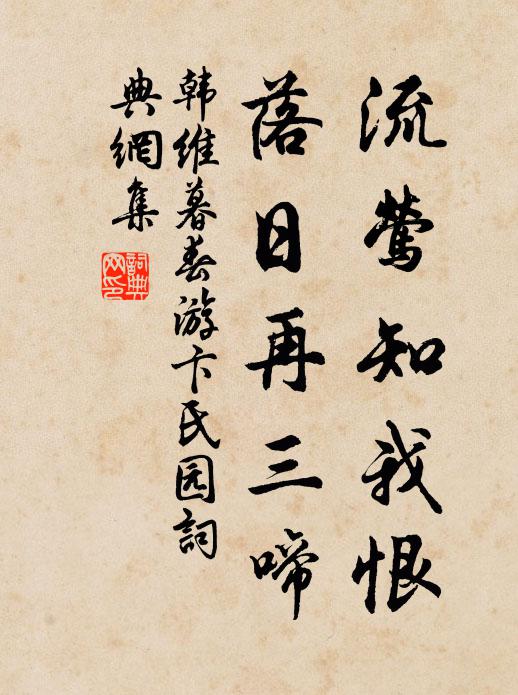 流莺知我恨
落日再三啼
韩维暮春游卞氏园詞
典網集
詞典网印